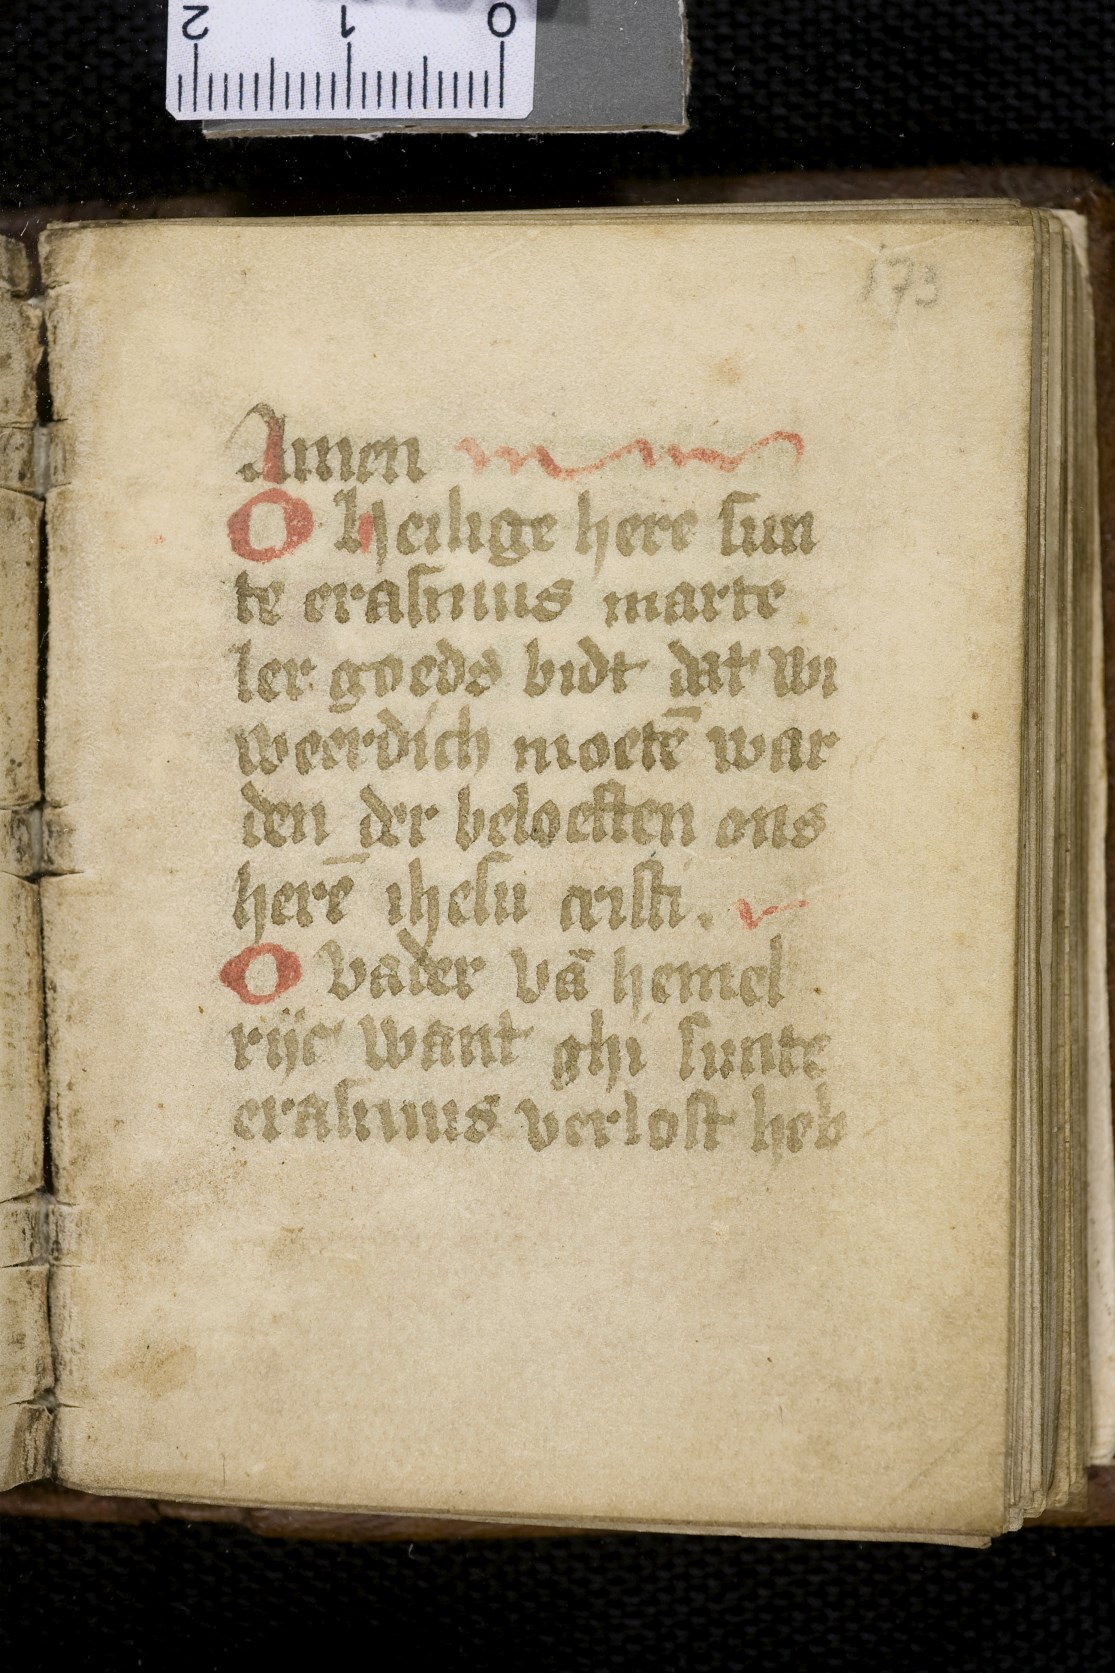 2 1 0
173
Amen
O heilige here sun
te erasmus marte
ler goeds bidt dat wi
weerdich moetē war
den der beloeften ons
herē ihesu cristi.
O vader vā hemel
rijc want ghi sunte
erasmus verlost heb